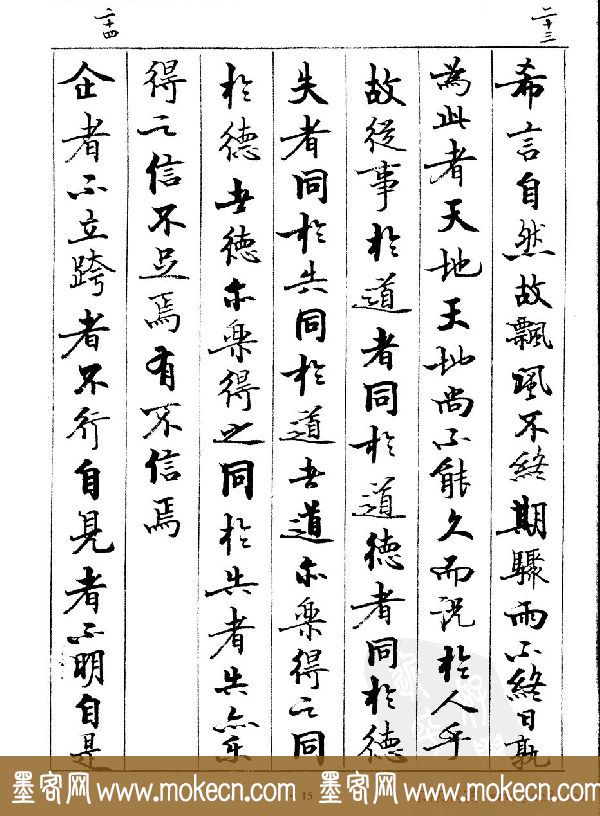 二十三
希言自然故飄風不終期驟雨不終日孰
為此者天地天地尚不能久而況於人乎
故從事於道者同於道德者同於德
失者同於失同於道者道亦樂得之同
於德者德亦樂得之同於失者失亦樂
得之信不足焉有不信焉
二十四
企者不立跨者不行自見者不明自是
墨客网 www.mokecn.com 墨客网 www.mokecn.com
15